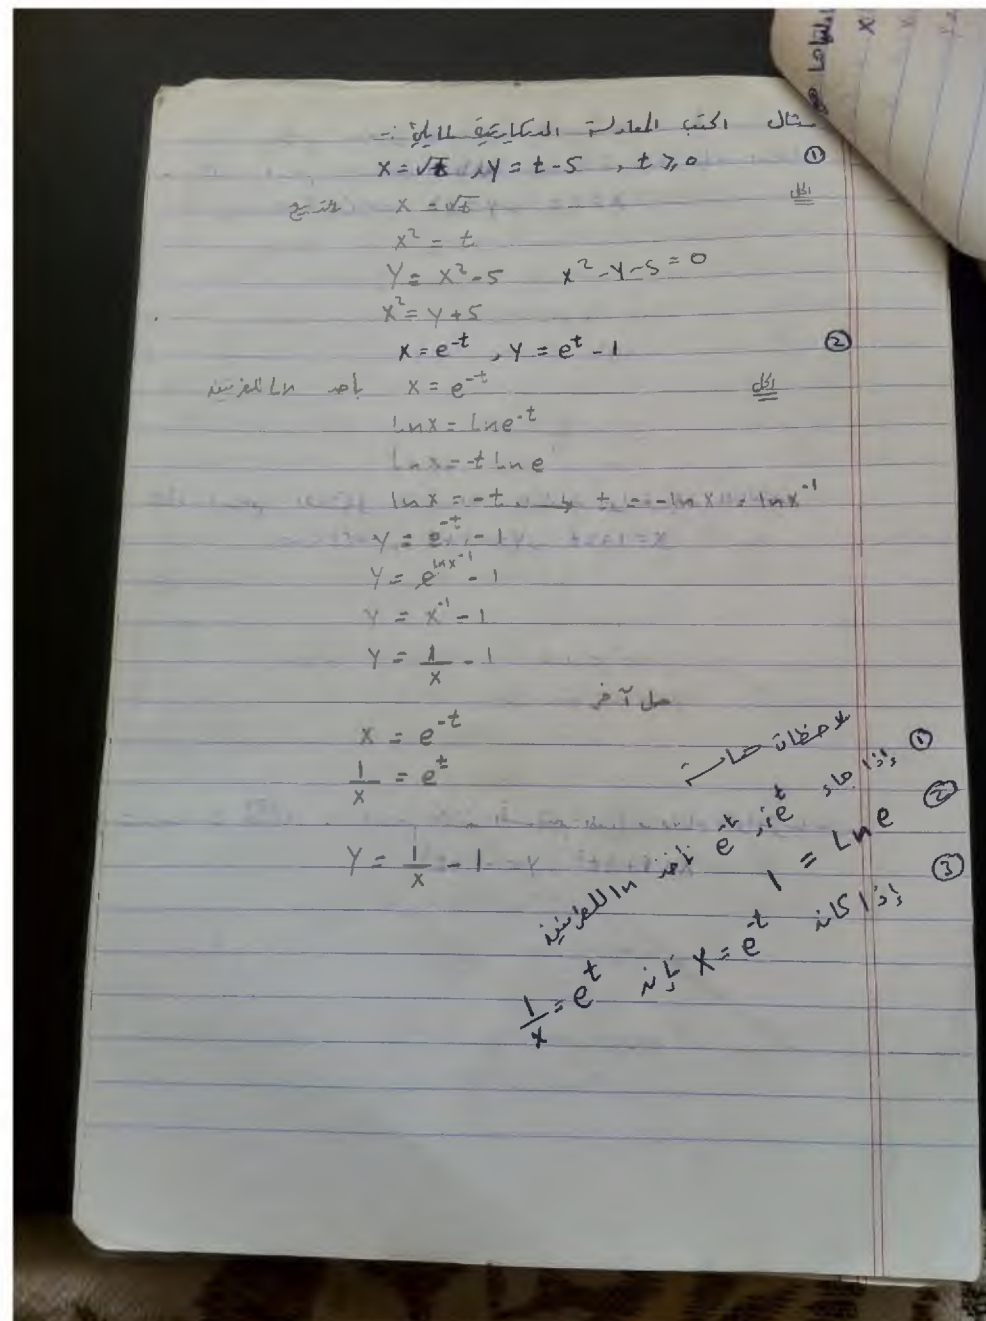 مثال اكتب المعادلة الديكارتية لما يلي :-
① x = √t , y = t - 5 , t ≥ 0
الحل x = √t بالتربيع
x² = t
y = x² - 5 x² - y - 5 = 0
x² = y + 5
② x = e^-t , y = e^t - 1
الحل x = e^-t بأخذ Ln للطرفين
Lnx = Lne^-t
Lnx = -t Lne
lnx = -t t = -lnx = lnx^-1
y = e^-t - 1
y = e^lnx^-1 - 1
y = x^-1 - 1
y = 1/x - 1
حل آخر
x = e^-t
1/x = e^t
y = 1/x - 1
ملاحظات هامة
① إذا جاء e^t, e^-t نأخذ Ln للطرفين
② 1 = Lne
③ إذا كانت x = e^-t فإنه 1/x = e^t